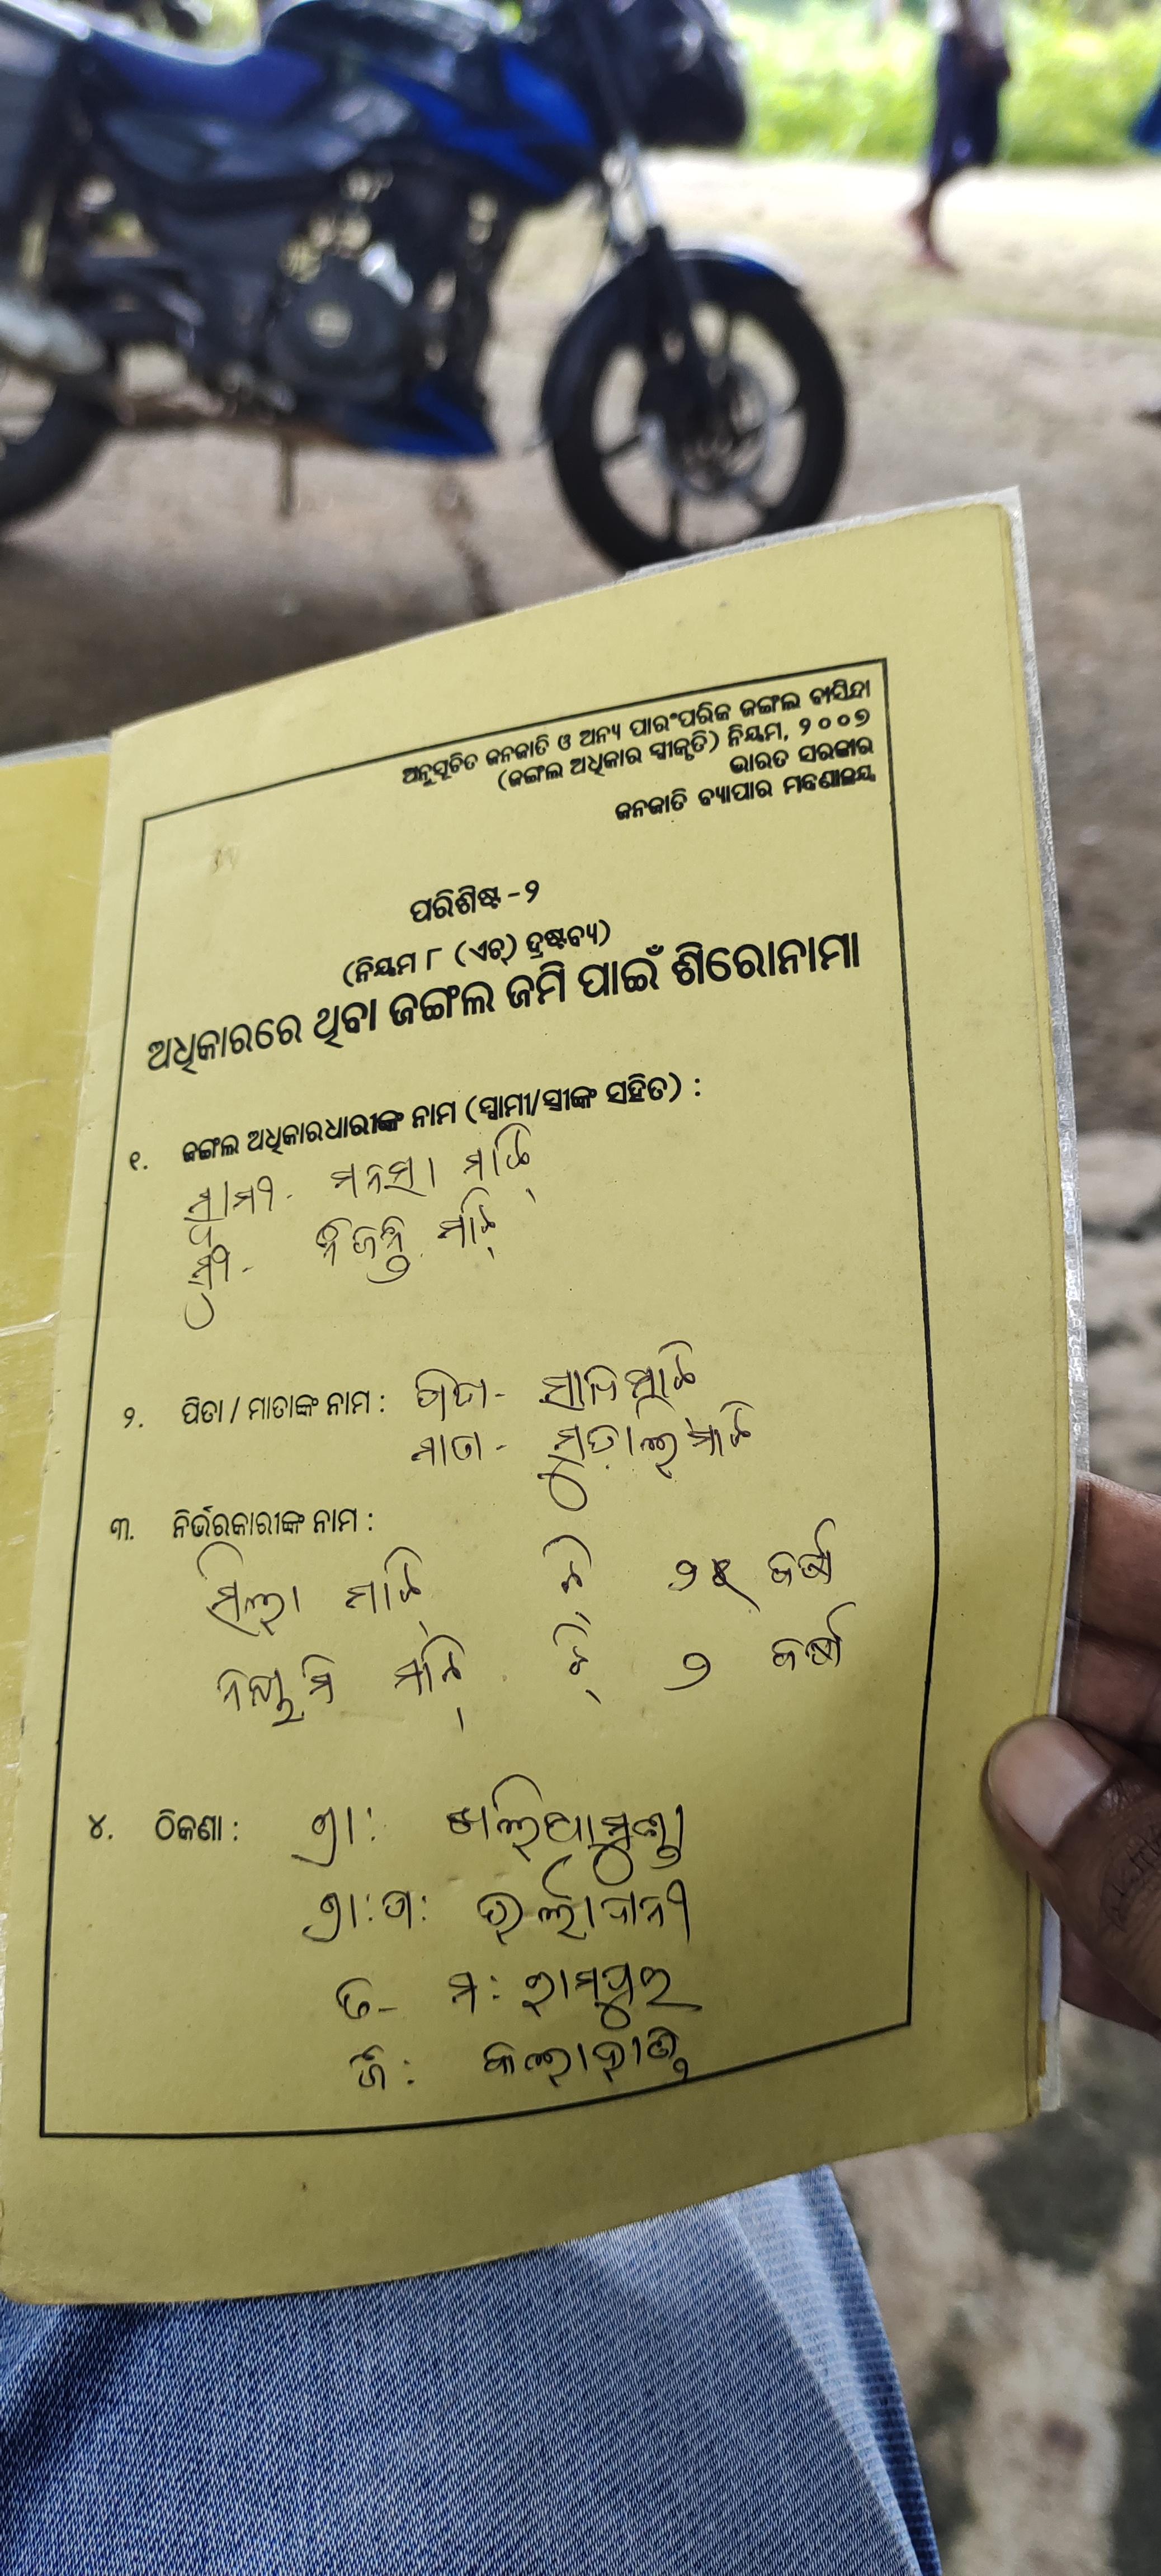 ଅନୁସୂଚିତ ଜନଜାତି ଓ ଅନ୍ୟ ପାରଂପରିକ ଜଙ୍ଗଲ ବାସିନ୍ଦା
(ଜଙ୍ଗଲ ଅଧିକାର ସ୍ୱୀକୃତି) ନିୟମ, ୨୦୦୭
ଭାରତ ସରକାର
ଜନଜାତି ବ୍ୟାପାର ମନ୍ତ୍ରଣାଳୟ
ପରିଶିଷ୍ଟ-୨
(ନିୟମ ୮ (ଏଚ୍) ଦ୍ରଷ୍ଟବ୍ୟ)
ଅଧିକାରରେ ଥିବା ଜଙ୍ଗଲ ଜମି ପାଇଁ ଶିରୋନାମା
୧. ଜଙ୍ଗଲ ଅଧିକାରଧାରୀଙ୍କ ନାମ (ସ୍ୱାମୀ/ସ୍ତ୍ରୀଙ୍କ ସହିତ) :
ସ୍ୱାମୀ- ମନସା ମାଝି
ସ୍ତ୍ରୀ- ମାଝି
୨. ପିତା / ମାତାଙ୍କ ନାମ : ପିତା-
ମାତା-
୩. ନିର୍ଭରକାରୀଙ୍କ ନାମ :
ମାଝି ଝି ବର୍ଷ
ମାଝି ଝି ୭ ବର୍ଷ
୪. ଠିକଣା : ଗ୍ରା:
ଗ୍ରା:ପ:
ତ- ମ: ରାମପୁର
ଜି: କଳାହାଣ୍ଡି